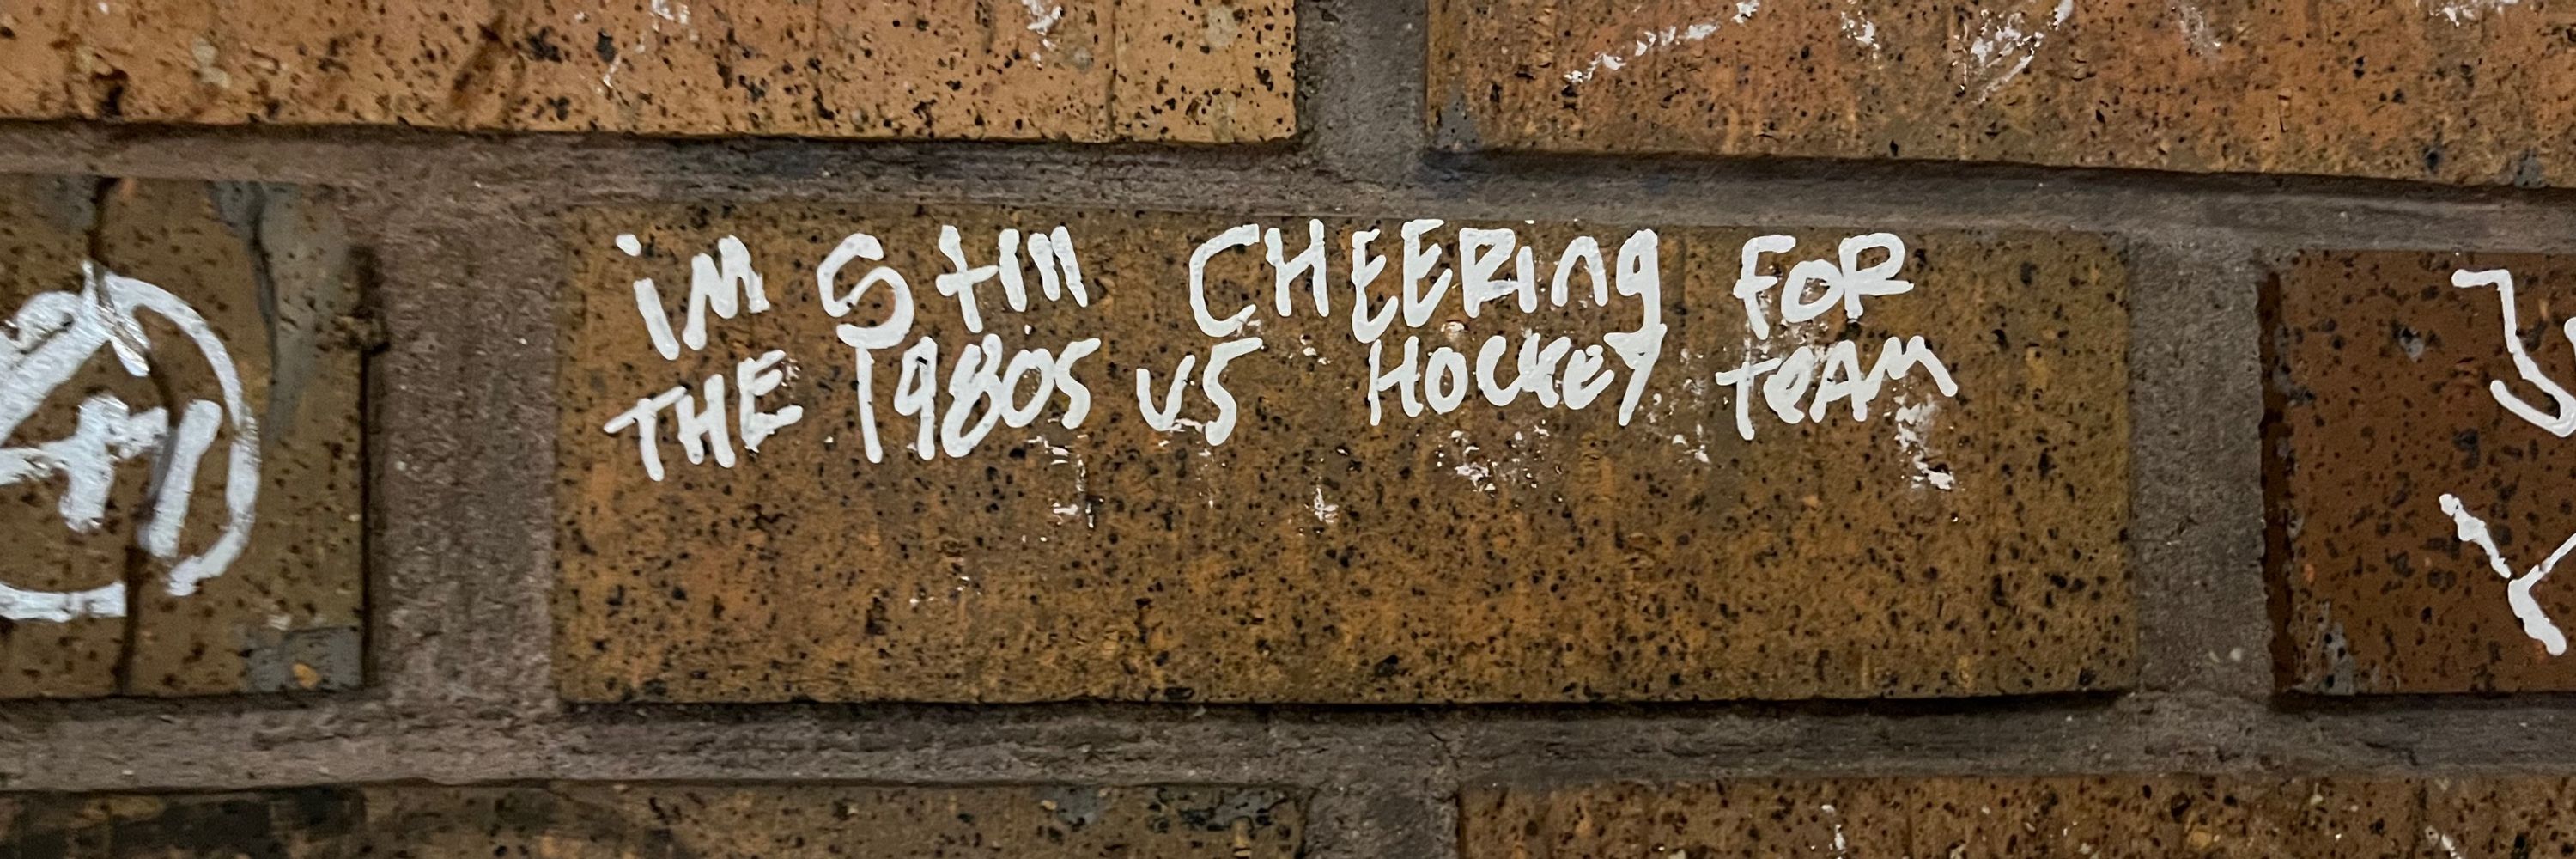 iM Still CHEERing FOR
THE 1980s US HOCKEY TEAM